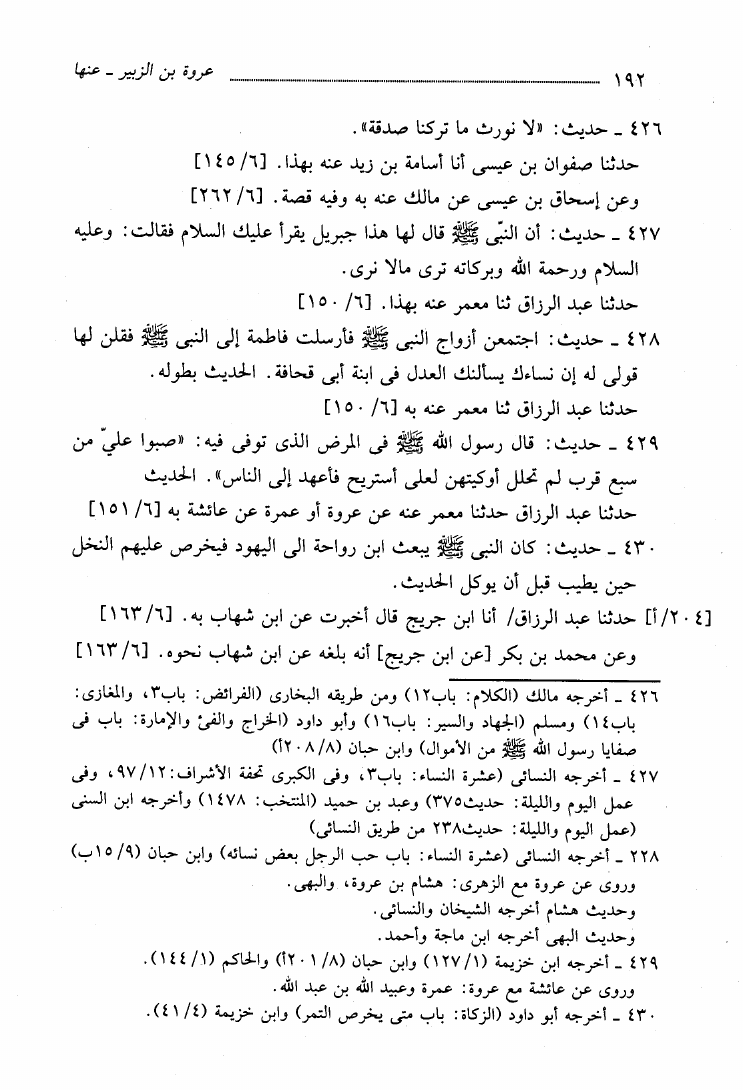 ١٩٢ ــــــــــــــــــــــــــــــــــــــــــــــــ عروة بن الزبير ـ عنها
٤٢٦ ـ حديث: «لا نورث ما تركنا صدقة».
حدثنا صفوان بن عيسى أنا أسامة بن زيد عنه بهذا. [٦/ ١٤٥]
وعن إسحاق بن عيسى عن مالك عنه به وفيه قصة. [٦/ ٢٦٢]
٤٢٧ ـ حديث: أن النبّى ﷺ قال لها هذا جبريل يقرأ عليك السلام فقالت: وعليه
السلام ورحمة الله وبركاته ترى مالا نرى.
حدثنا عبد الرزاق ثنا معمر عنه بهذا. [٦/ ١٥٠]
٤٢٨ ـ حديث: اجتمعن أزواج النبى ﷺ فأرسلت فاطمة إلى النبى ﷺ فقلن لها
قولى له إن نساءك يسألنك العدل فى ابنة أبى قحافة. الحديث بطوله.
حدثنا عبد الرزاق ثنا معمر عنه به [٦/ ١٥٠]
٤٢٩ ـ حديث: قال رسول الله ﷺ فى المرض الذى توفى فيه: «صبوا عليّ من
سبع قرب لم تحلل أوكيتهن لعلى أستريح فأعهد إلى الناس». الحديث
حدثنا عبد الرزاق حدثنا معمر عنه عن عروة أو عمرة عن عائشة به [٦/ ١٥١]
٤٣٠ ـ حديث: كان النبى ﷺ يبعث ابن رواحة الى اليهود فيخرص عليهم النخل
حين يطيب قبل أن يوكل الحديث.
[٢٠٤/أ] حدثنا عبد الرزاق/ أنا ابن جريج قال أخبرت عن ابن شهاب به. [٦/ ١٦٣]
وعن محمد بن بكر [عن ابن جريج] أنه بلغه عن ابن شهاب نحوه. [٦/ ١٦٣]
٤٢٦ ـ أخرجه مالك (الكلام: باب١٢) ومن طريقه البخارى (الفرائض: باب٣، والمغازى:
باب١٤) ومسلم (الجهاد والسير: باب١٦) وأبو داود (الخراج والفئ والإمارة: باب فى
صفايا رسول الله ﷺ من الأموال) وابن حبان (٨/ ٢٠٨أ)
٤٢٧ ـ أخرجه النسائى (عشرة النساء: باب٣، وفى الكبرى تحفة الأشراف:١٢/ ٩٧، وفى
عمل اليوم والليلة: حديث٣٧٥) وعبد بن حميد (المنتخب: ١٤٧٨) وأخرجه ابن السنى
(عمل اليوم والليلة: حديث٢٣٨ من طريق النسائى)
٢٢٨ ـ أخرجه النسائى (عشرة النساء: باب حب الرجل بعض نسائه) وابن حبان (٩/ ١٥ب)
وروى عن عروة مع الزهرى: هشام بن عروة، والبهى.
وحديث هشام أخرجه الشيخان والنسائى.
وحديث البهى أخرجه ابن ماجة وأحمد.
٤٢٩ ـ أخرجه ابن خزيمة (١/ ١٢٧) وابن حبان (٨/ ٢٠١أ) والحاكم (١/ ١٤٤).
وروى عن عائشة مع عروة: عمرة وعبيد الله بن عبد الله.
٤٣٠ ـ أخرجه أبو داود (الزكاة: باب متى يخرص التمر) وابن خزيمة (٤/ ٤١).